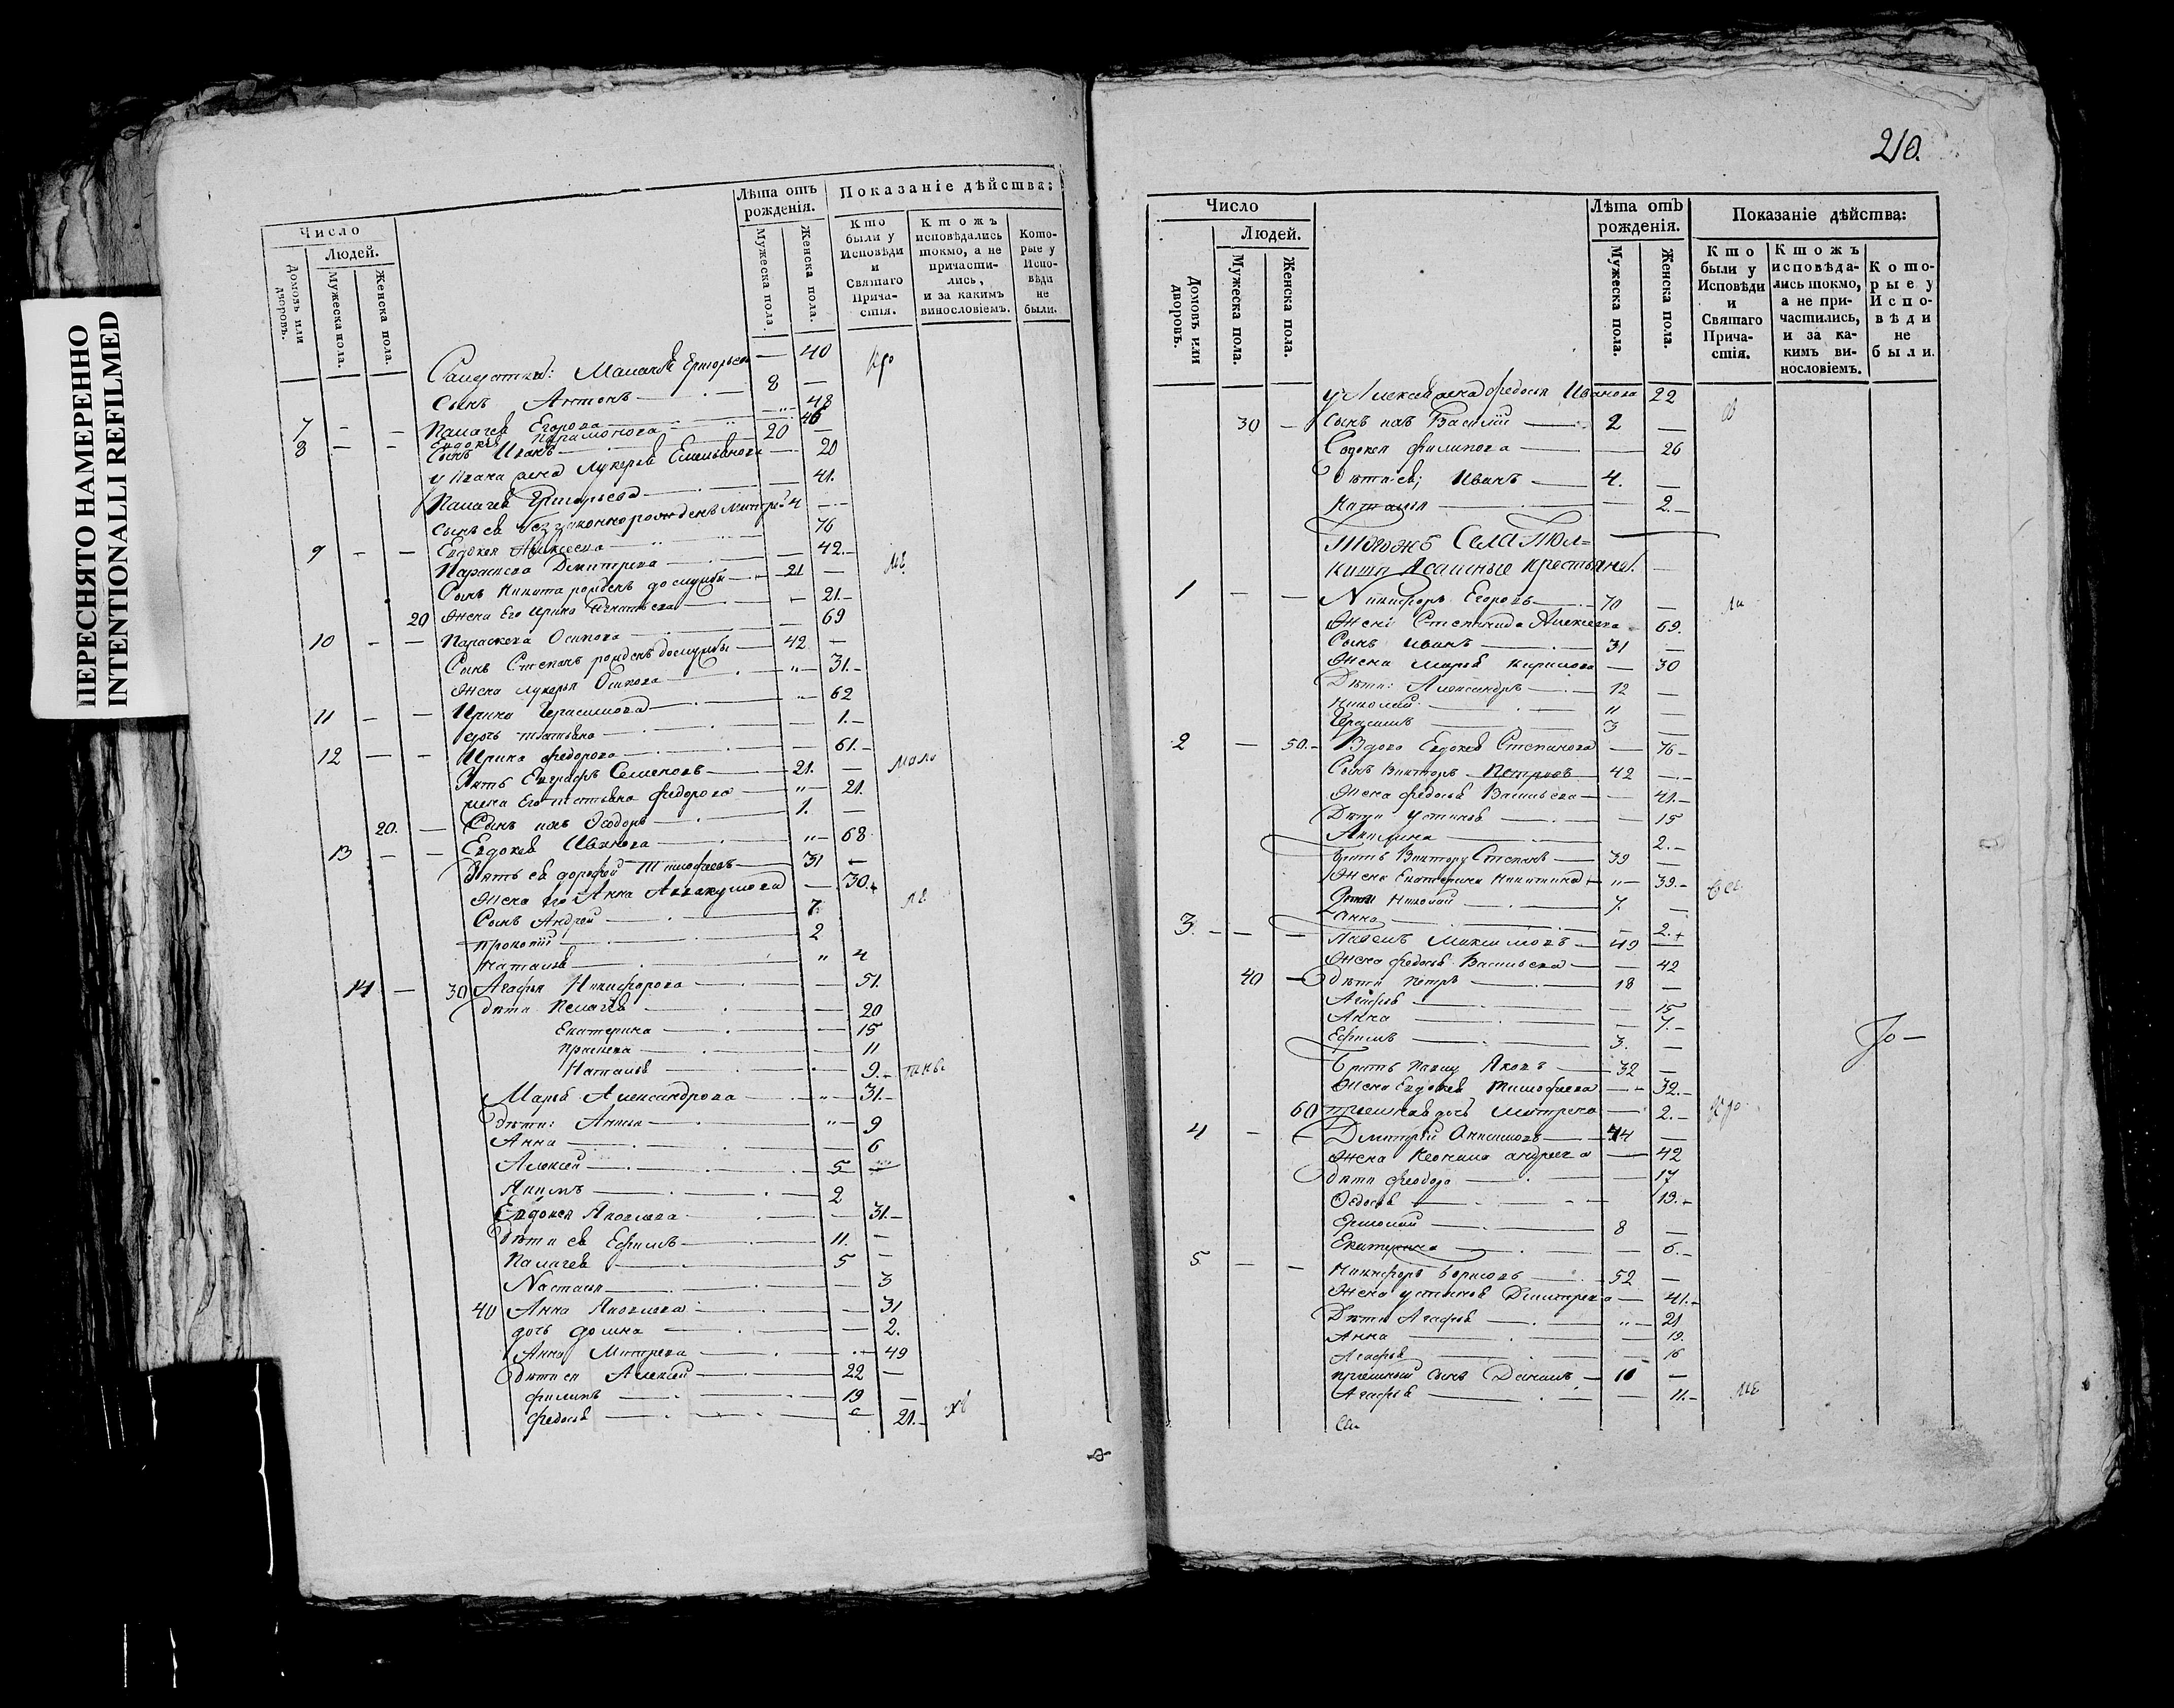 ПЕРЕСНЯТО НАМЕРЕННО
INTENTIONALLI REFILMED
Число
Людей.
Домовъ или дворовъ.
Мужеска пола.
Женска пола.
Лѣта отъ рожденія.
Мужеска пола.
Женска пола.
Показаніе дѣйства:
Кто были у Исповѣди и Святаго Прича-стія.
Ктожъ исповѣдались токмо, а не причасти-лись, и за какимъ винословіемъ.
Кото-рые у Испо-вѣди не были.
40
Сынъ Антонъ 8
7 Егорова 48
8 46
Сынъ Иванъ 20
Лукерья Емельянова 20
Григорьева 41.
4
9 Евдокея Алексеева 76
Параскева Дмитрева 42
Сынъ Никита 21
20 Жена Его Ирина Игнатьева 21
10 Параскева Осипова 69
Сынъ Степанъ 42
Жена Лукерья Осипова 31
11 Ирина Герасимова 62
дочь Татьяна 1
12 Ирина Федорова 61
Зять Евграфъ Семеновъ 21
жена Его Татьяна Федорова 21
20. Сынъ ихъ Ѳеодоръ 1.
13 Евдокея Иванова 68
Зять ея Дорофей Тимофеевъ 31
Жена Его Анна Аввакумова 30
Сынъ Андрей 7
Прокопій 2
Наталья 4
14 30 Агафья Никифорова 51.
дѣти Пелагея 20
Екатерина 15
11
Наталья 9
Марья Александрова 31
Дѣти: Анисья 9
Анна 6
Алексей 5
Акимъ 2
Евдокея Яковлева 31
Дѣти ея Ефимъ 11.
5
Настасья 3
40 Анна Яковлева 31
дочь Домна 2.
Анна Митрева 49
Дѣти ея Алексей 22
Филипъ 19
Федосья 21
210.
Число
Людей.
Домовъ или дворовъ.
Мужеска пола.
Женска пола.
Лѣта отъ рожденія.
Мужеска пола.
Женска пола.
Показаніе дѣйства:
Кто были у Исповѣди и Святаго Прича-стія.
Ктожъ исповѣда-лись токмо, а не при-частились, и за ка-кимъ ви-нословіемъ.
Кото-рые у Испо-вѣди не были.
у Алексея жена Федосья Иванова 22
30 Сынъ ихъ Василій 2
Филипова 26
дѣти ея; Иванъ 4.
Наталья 2
тогожъ Села
Ясашные крестьяне.
1 Никифоръ Егоровъ 70
Жена Степанида Алексеева 69.
Сынъ Иванъ 31
Жена Марья Кирилова 30
Дѣти: Александръ 12
Николай 11
Герасимъ 3
2 50. Вдова Евдокея Степанова 76
Сынъ Викторъ Петровъ 42
Жена Федосья Васильева 41
Дѣти Устинья 15
Акилина 2
братъ Виктору Степанъ 39
Жена Екатерина Никитина 39
Дѣти Николай 7.
Анна 2
3. Павелъ Максимовъ 49
Жена Федосья Васильева 42
40 Дѣти Петръ 18
Агафья 15
Анна 7
Ефимъ 3.
братъ Павлу Яковъ 32
Жена Евдокея Тимофеева 32
60 дочь Митрева 2
4 Дмитрей Анисимовъ 44
Жена Андреева 42
дѣти Феодора 17
Ѳедосья 13
Ермолай 8
Екатерина 6
5 Никифоръ Борисовъ 52
Жена Устинья Дмитрева 41
Дѣти Агафья 21
Анна 19.
Агафья 16
приемный сынъ Данилъ
Агафья 11